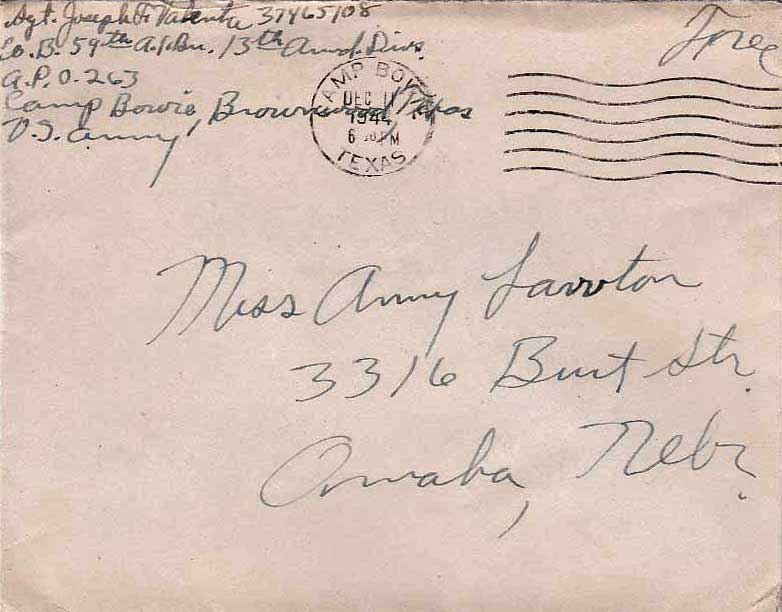 Sgt. Joseph F. Valenta 37465108
Co. B. 59th A.I.Bn. 13th Armd. Div.
A.P.O. 263
Camp Bowie, Brownwood, Texas
U.S. Army
Free
CAMP BOWIE
DEC 11
1944
PM
TEXAS
Miss Amy
3316 Burt Str.
Omaha, Nebr.